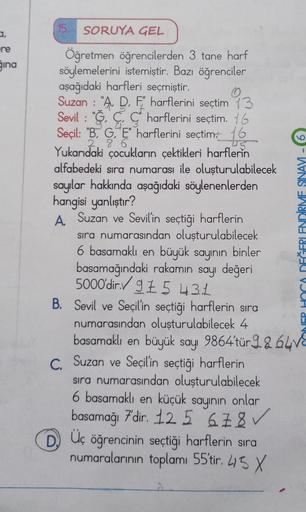 15. SORUYA GEL
Öğretmen öğrencilerden 3 tane harf
söylemelerini istemiştir. Bazı öğrenciler
aşağıdaki harfleri seçmiştir.
Suzan : "A, D, F" harflerini seçtim 13
Sevil : "Ğ, Ç, C" harflerini seçtim. 16
Seçil: "B, G, E" harflerini seçtim. 16
2 8 6 45
Yukarıdaki çocukların çektikleri harflerin
alfabedeki sıra numarası ile oluşturulabilecek
sayılar hakkında aşağıdaki söylenenlerden
hangisi yanlıştır?
A. Suzan ve Sevil'in seçtiği harflerin
sıra numarasından oluşturulabilecek
6 basamaklı en büyük sayının binler
basamağındaki rakamın sayı değeri
5000'dir. ✓ 975 431
B. Sevil ve Seçil'in seçtiği harflerin sıra
numarasından oluşturulabilecek 4
basamaklı en büyük sayı 9864'tür 9864 ✓
C. Suzan ve Seçil'in seçtiği harflerin
sıra numarasından oluşturulabilecek
6 basamaklı en küçük sayının onlar
basamağı 7'dir. 125 678 ✓
D. Üç öğrencinin seçtiği harflerin sıra
numaralarının toplamı 55'tir. 45 X
a,
ere
ğına
DEĞERLENDİRME SINAVI - 6